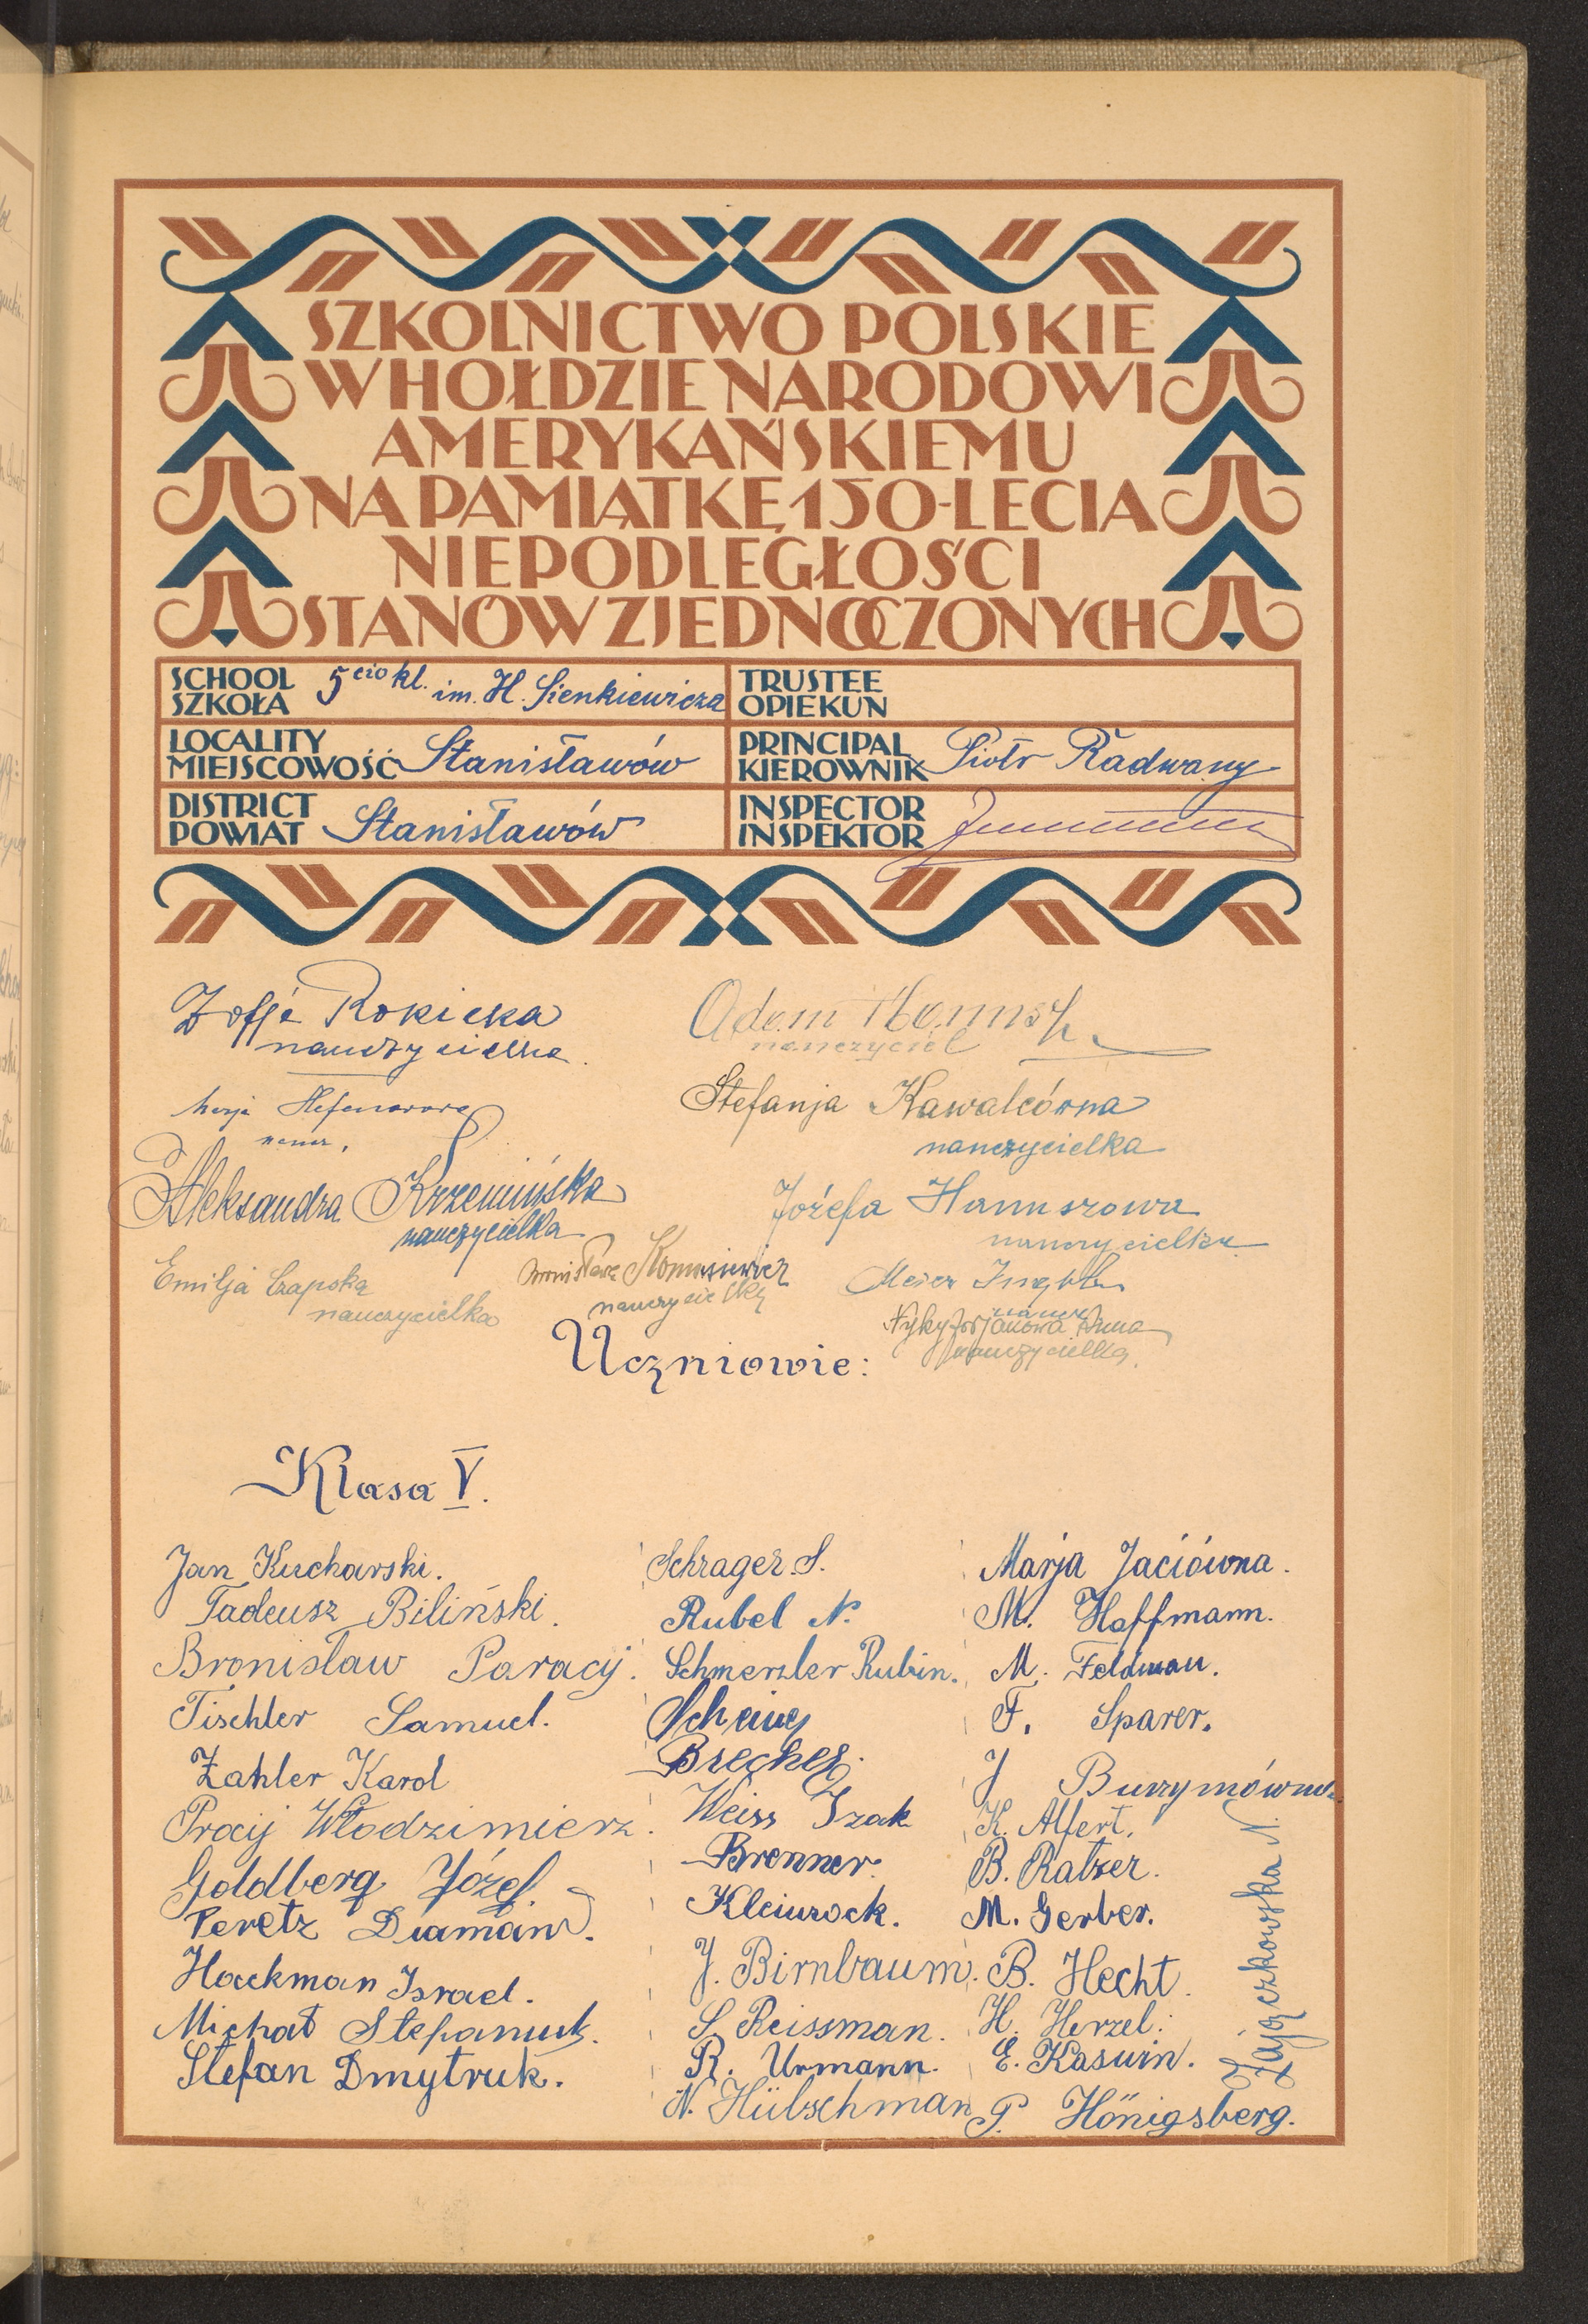 SZKOLNICTWO POLSKIE
W HOŁDZIE NARODOWI
AMERYKAŃSKIEMU
NA PAMIĄTKĘ 150-LECIA
NIEPODLEGŁOŚCI
STANÓW ZJEDNOCZONYCH
SCHOOL
SZKOŁA
5cio kl. im. H. Sienkiewicza
TRUSTEE
OPIEKUN
LOCALITY
MIEJSCOWOŚĆ
Stanisławów
PRINCIPAL
KIEROWNIK
Piotr Radwany
DISTRICT
POWIAT
Stanisławów
INSPECTOR
INSPEKTOR
Zofja Rokicka
nauczycielka
Adam
nauczyciel
naucz.
Stefanja Kawalcówna
nauczycielka
Aleksandra Krzemińska
nauczycielka
Józefa Hanuszowa
nauczycielka
Emilja Czapska
nauczycielka
nauczycielka
Meier
naucz.
Anna
nauczycielka
Uczniowie:
Klasa V.
Jan Kucharski.
Tadeusz Biliński.
Bronisław Paracij.
Tischler Samuel.
Zahler Karol
Procij Włodzimierz.
Goldberg Józef.
Peretz Diamand.
Hackman Israel.
Michał Stepaniuk.
Stefan Dmytruk.
Schrager S.
Rubel N.
Schmerzler Rubin.
Brecher.
Weiss Izak
Brenner.
Kleinrock.
J. Birnbaum.
S. Reissman.
R. Urmann.
N. Hübschman
Marja Jaciówna.
M. Hoffmann.
M. Feldman.
F. Sparer.
J Burzymówna.
K. Alfert.
B. Ratzer.
M. Gerber.
B. Hecht.
H. Herzel.
E. Kaswin.
P. Hönigsberg.
Zajączkowska N.